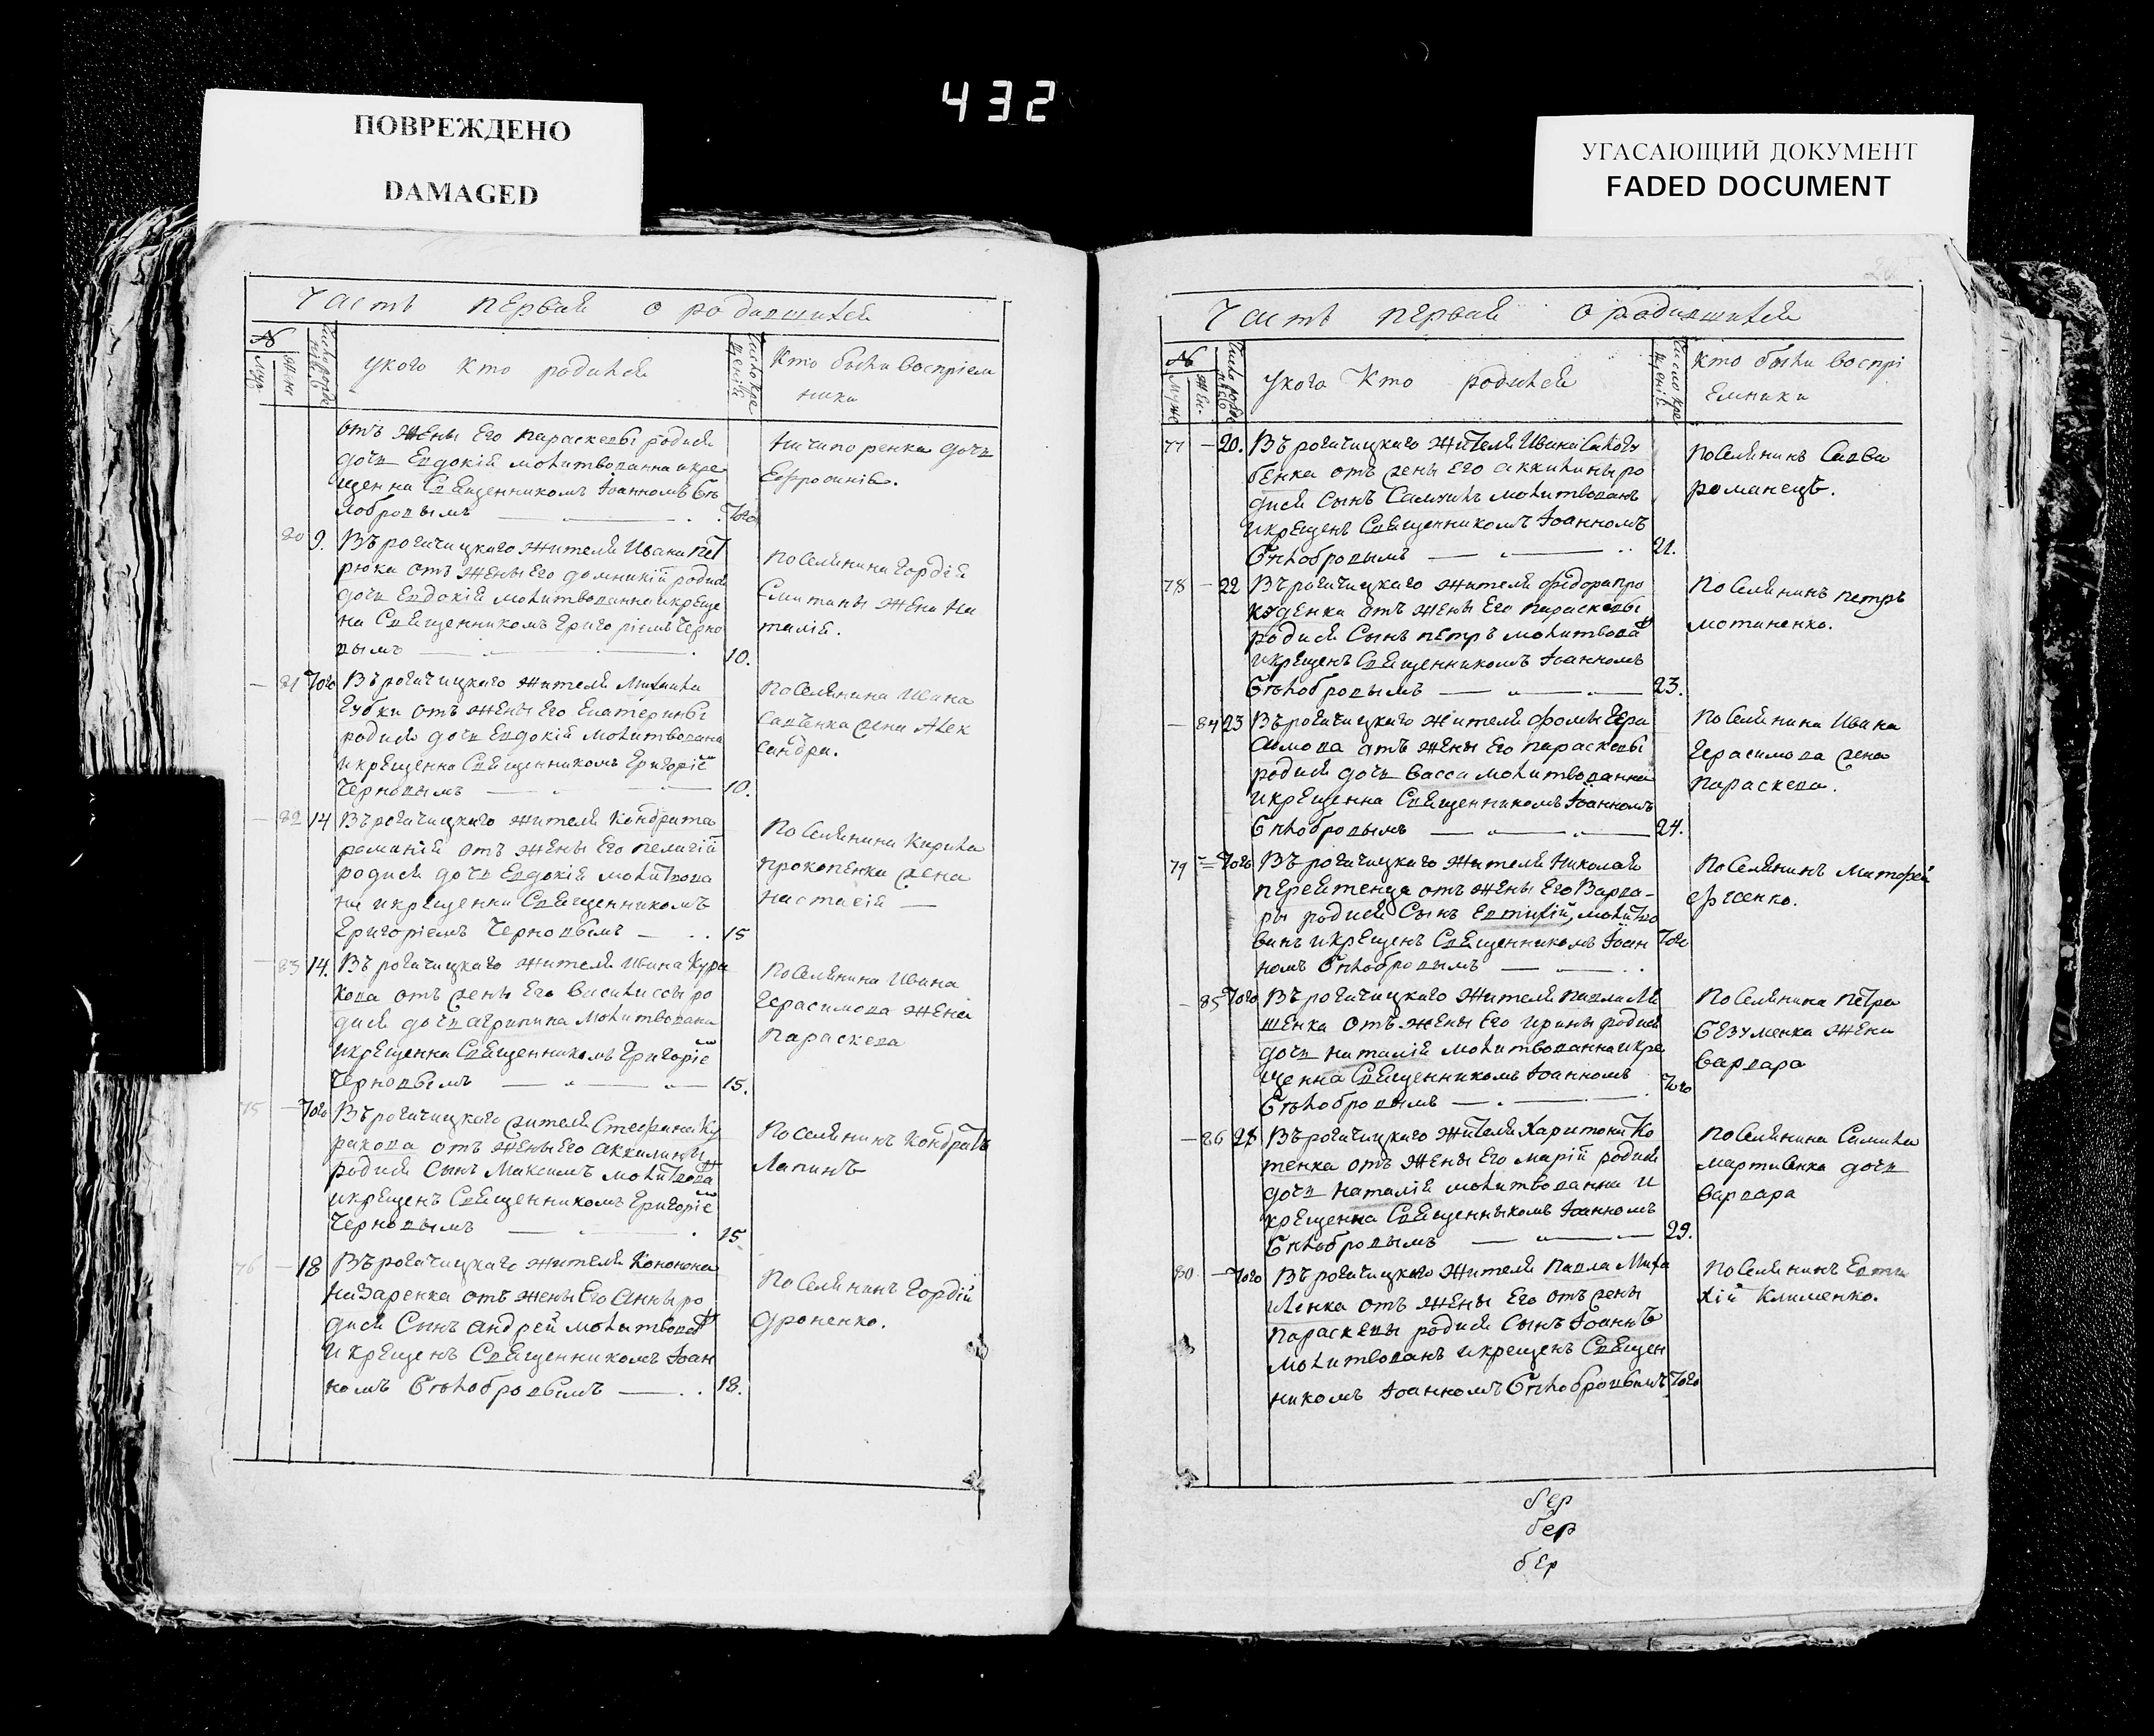 432
ПОВРЕЖДЕНО
DAMAGED
УГАСАЮЩИЙ ДОКУМЕНТ
FADED DOCUMENT
Часть первая о родившихся
№
Муж.
Жен
Число рожде
укого кто родился
Число кре
щенія
Кто были воспріем
ники
отъ жены Его параскевы родися
дочь Евдокія молитвованна икре
щенна Священникомъ Іоанномъ Бѣ
лобровымъ
Того
Ничипоренка дочь
Ефросинія.
80 9. Въ рогачицкаго жителя Ивана Пет
рюка отъ жены Его домникіи родися
дочь Евдокія молитвованна икреще
на Священникомъ Григоріемъ Черно
вымъ
10.
Поселянина Гордѣя
Смитаны жена На
талія.
81 Того Въ рогачицкаго жителя Михаила
Губки отъ жены Его Екатерины
родися дочь Евдокія молитвована
и крещенна Священникомъ Григоріе
Черновымъ
10.
Поселянина Ивана
Савченка жена Алек
сандра.
82 14 Въ рогачицкаго жителя Кондрата
романія отъ жены Его пелагіи
родися дочь Евдокія молитвова
на икрещенна Священникомъ
Григоріемъ Черновымъ
15
Поселянина Карила
прокопенка жена
Настасія
83 14. Въ рогачицкаго жителя Ивана Кура
кова отъ жены Его Василиссы ро
дися дочь агрипина молитвована
икрещенна Священникомъ Григоріе
Черновымъ
15.
Поселянина Ивана
Герасимова жена
Параскева
75 Того Въ рогачицкаго жителя Стефана Ку
ракова отъ жены Его аккилины
родися Сынъ Максимъ молитвова
икрещенъ Священникомъ Григоріе
Черновымъ
15.
Поселянинъ Кондратъ
Лапинъ
76 18 Въ рогачицкаго жителя Конона
Назаренка отъ жены Его Анны ро
дися Сынъ андрей молитвова
и крещенъ Священникомъ Іоан
номъ Бѣлобровымъ
18.
Поселянинъ Гордій
дроненко.
Часть первая о родившихся
№
Муже
Жен.
укого Кто родился
Число кре
щенія
кто были воспрі
емники
77 20. Въ рогачицкаго жителя Ивана
бенка отъ жены Его аккилины ро
дися Сынъ Самуилъ молитвованъ
икрещенъ Священникомъ Іоанномъ
Бѣлобровымъ
21.
Поселянинъ Савва
романецъ.
78 22 Въ рогачицкаго жителя федора про
куденка отъ жены Его параскевы
родися Сынъ петръ молитвова
икрещенъ Священникомъ Іоанномъ
Бѣлобровымъ
23.
Поселянинъ петръ
мотиненко.
84 23 Въ рогачицкаго жителя фомы Гера
симова отъ жены Его параскевы
родися дочь васса молитвованна
икрещенна Священникомъ Іоанномъ
Бѣлобровымъ
24.
Поселянина Ивана
Герасимова жена
Параскева.
79 Того Въ рогачицкаго жителя Николая
отъ жены Его Варва-
ры родися Сынъ Евтихій, молитво
ванъ икрещенъ Священникомъ Іоан
номъ Бѣлобровымъ
Того
Поселянинъ Матфей
85 Того Въ рогачицкаго жителя павла Ля
шенка отъ жены Его ирины родися
дочь наталія молитвованна икре
щенна Священникомъ Іоанномъ
Бѣлобровымъ
Того
Поселянина Петра
безуменка жена
варвара
86 28 Въ рогачицкаго жителя Харитона Ко
тенка отъ жены Его маріи родися
дочь наталія молитвованна и
крещенна Священныкомъ Іоанномъ
Бѣлобровымъ
29.
Поселянина Самила
мартиенка дочь
варвара
80 Того Въ рогачицкаго жителя павла Миха
иленка отъ жены Его отъ жены
параскевы родися Сынъ Іоаннъ
молитвованъ икрещенъ Священ
никомъ Іоанномъ Бѣлобровымъ
Того
Поселянинъ Евти
хій Клименко.
бер
бер
бер